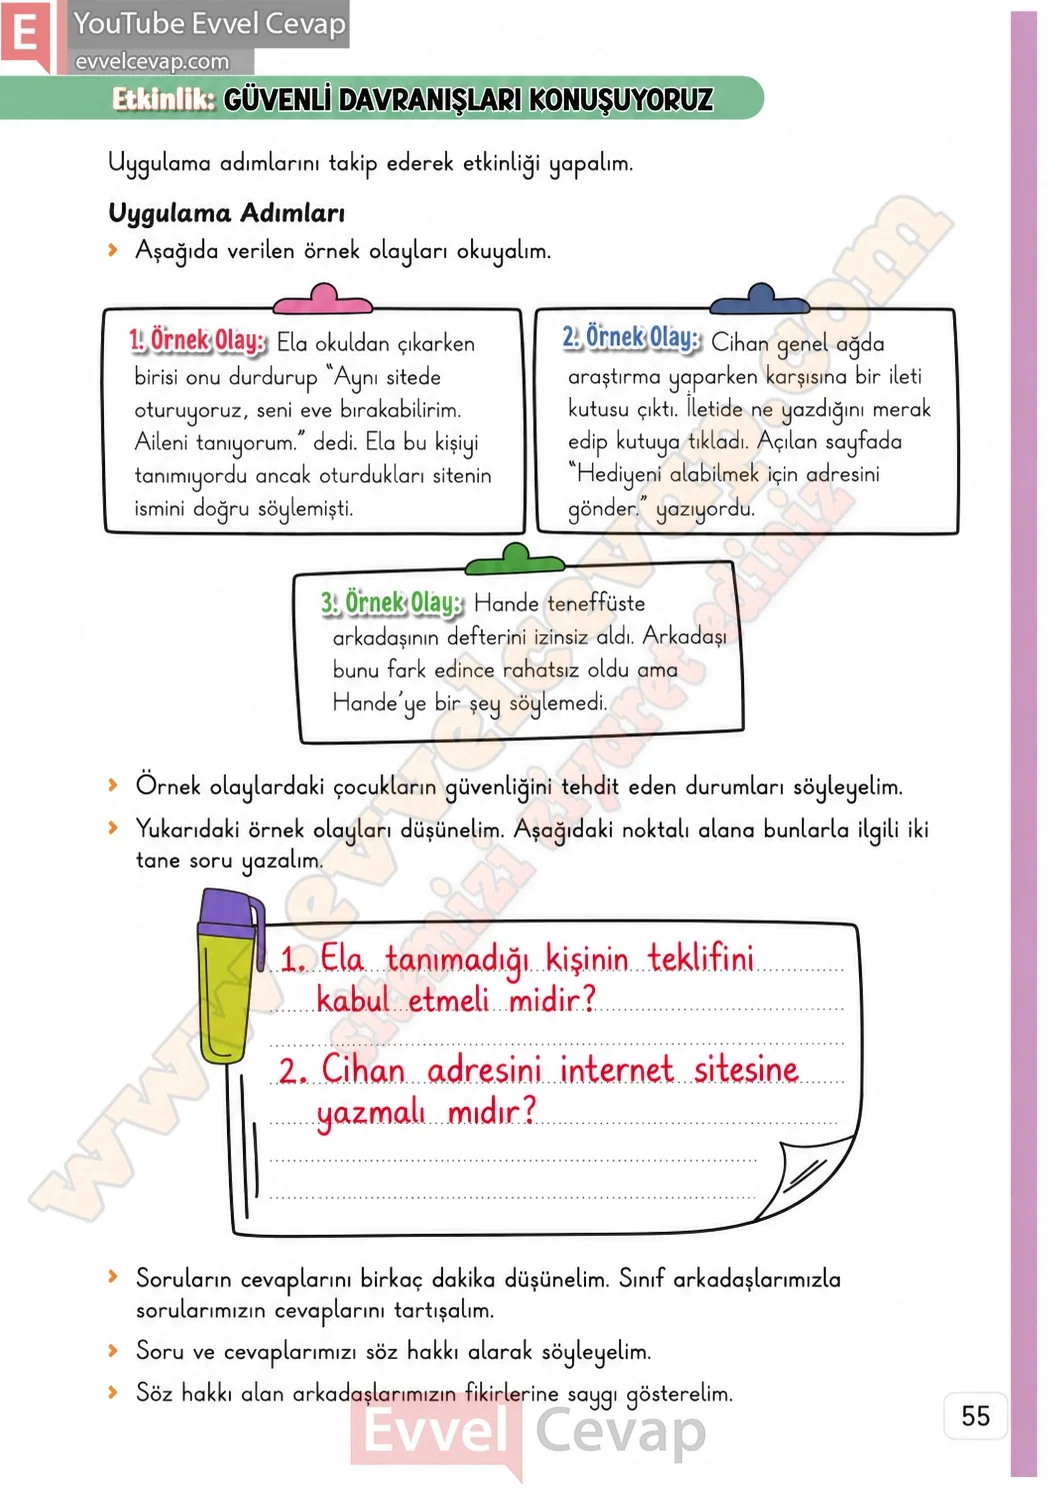 E
YouTube Evvel Cevap
evvelcevap.com
Etkinlik: GÜVENLİ DAVRANIŞLARI KONUŞUYORUZ
Uygulama adımlarını takip ederek etkinliği yapalım.
Uygulama Adımları
Aşağıda verilen örnek olayları okuyalım.
1. Örnek Olay: Ela okuldan çıkarken
birisi onu durdurup "Aynı sitede
oturuyoruz, seni eve bırakabilirim.
Aileni tanıyorum." dedi. Ela bu kişiyi
tanımıyordu ancak oturdukları sitenin
ismini doğru söylemişti.
2. Örnek Olay: Cihan genel ağda
araştırma yaparken karşısına bir ileti
kutusu çıktı. İletide ne yazdığını merak
edip kutuya tıkladı. Açılan sayfada
"Hediyeni alabilmek için adresini
gönder." yazıyordu.
3. Örnek Olay: Hande teneffüste
arkadaşının defterini izinsiz aldı. Arkadaşı
bunu fark edince rahatsız oldu ama
Hande'ye bir şey söylemedi.
Örnek olaylardaki çocukların güvenliğini tehdit eden durumları söyleyelim.
Yukarıdaki örnek olayları düşünelim. Aşağıdaki noktalı alana bunlarla ilgili iki
tane soru yazalım.
1. Ela tanımadığı kişinin teklifini
kabul etmeli midir?
2. Cihan adresini internet sitesine
yazmalı mıdır?
Soruların cevaplarını birkaç dakika düşünelim. Sınıf arkadaşlarımızla
sorularımızın cevaplarını tartışalım.
Soru ve cevaplarımızı söz hakkı alarak söyleyelim.
Söz hakkı alan arkadaşlarımızın fikirlerine saygı gösterelim.
55
Evvel Cevap
www.evvelcevap.com
sitemizi ziyaret ediniz